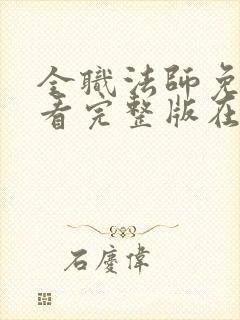 全職法師免
看完整版在
石慶偉